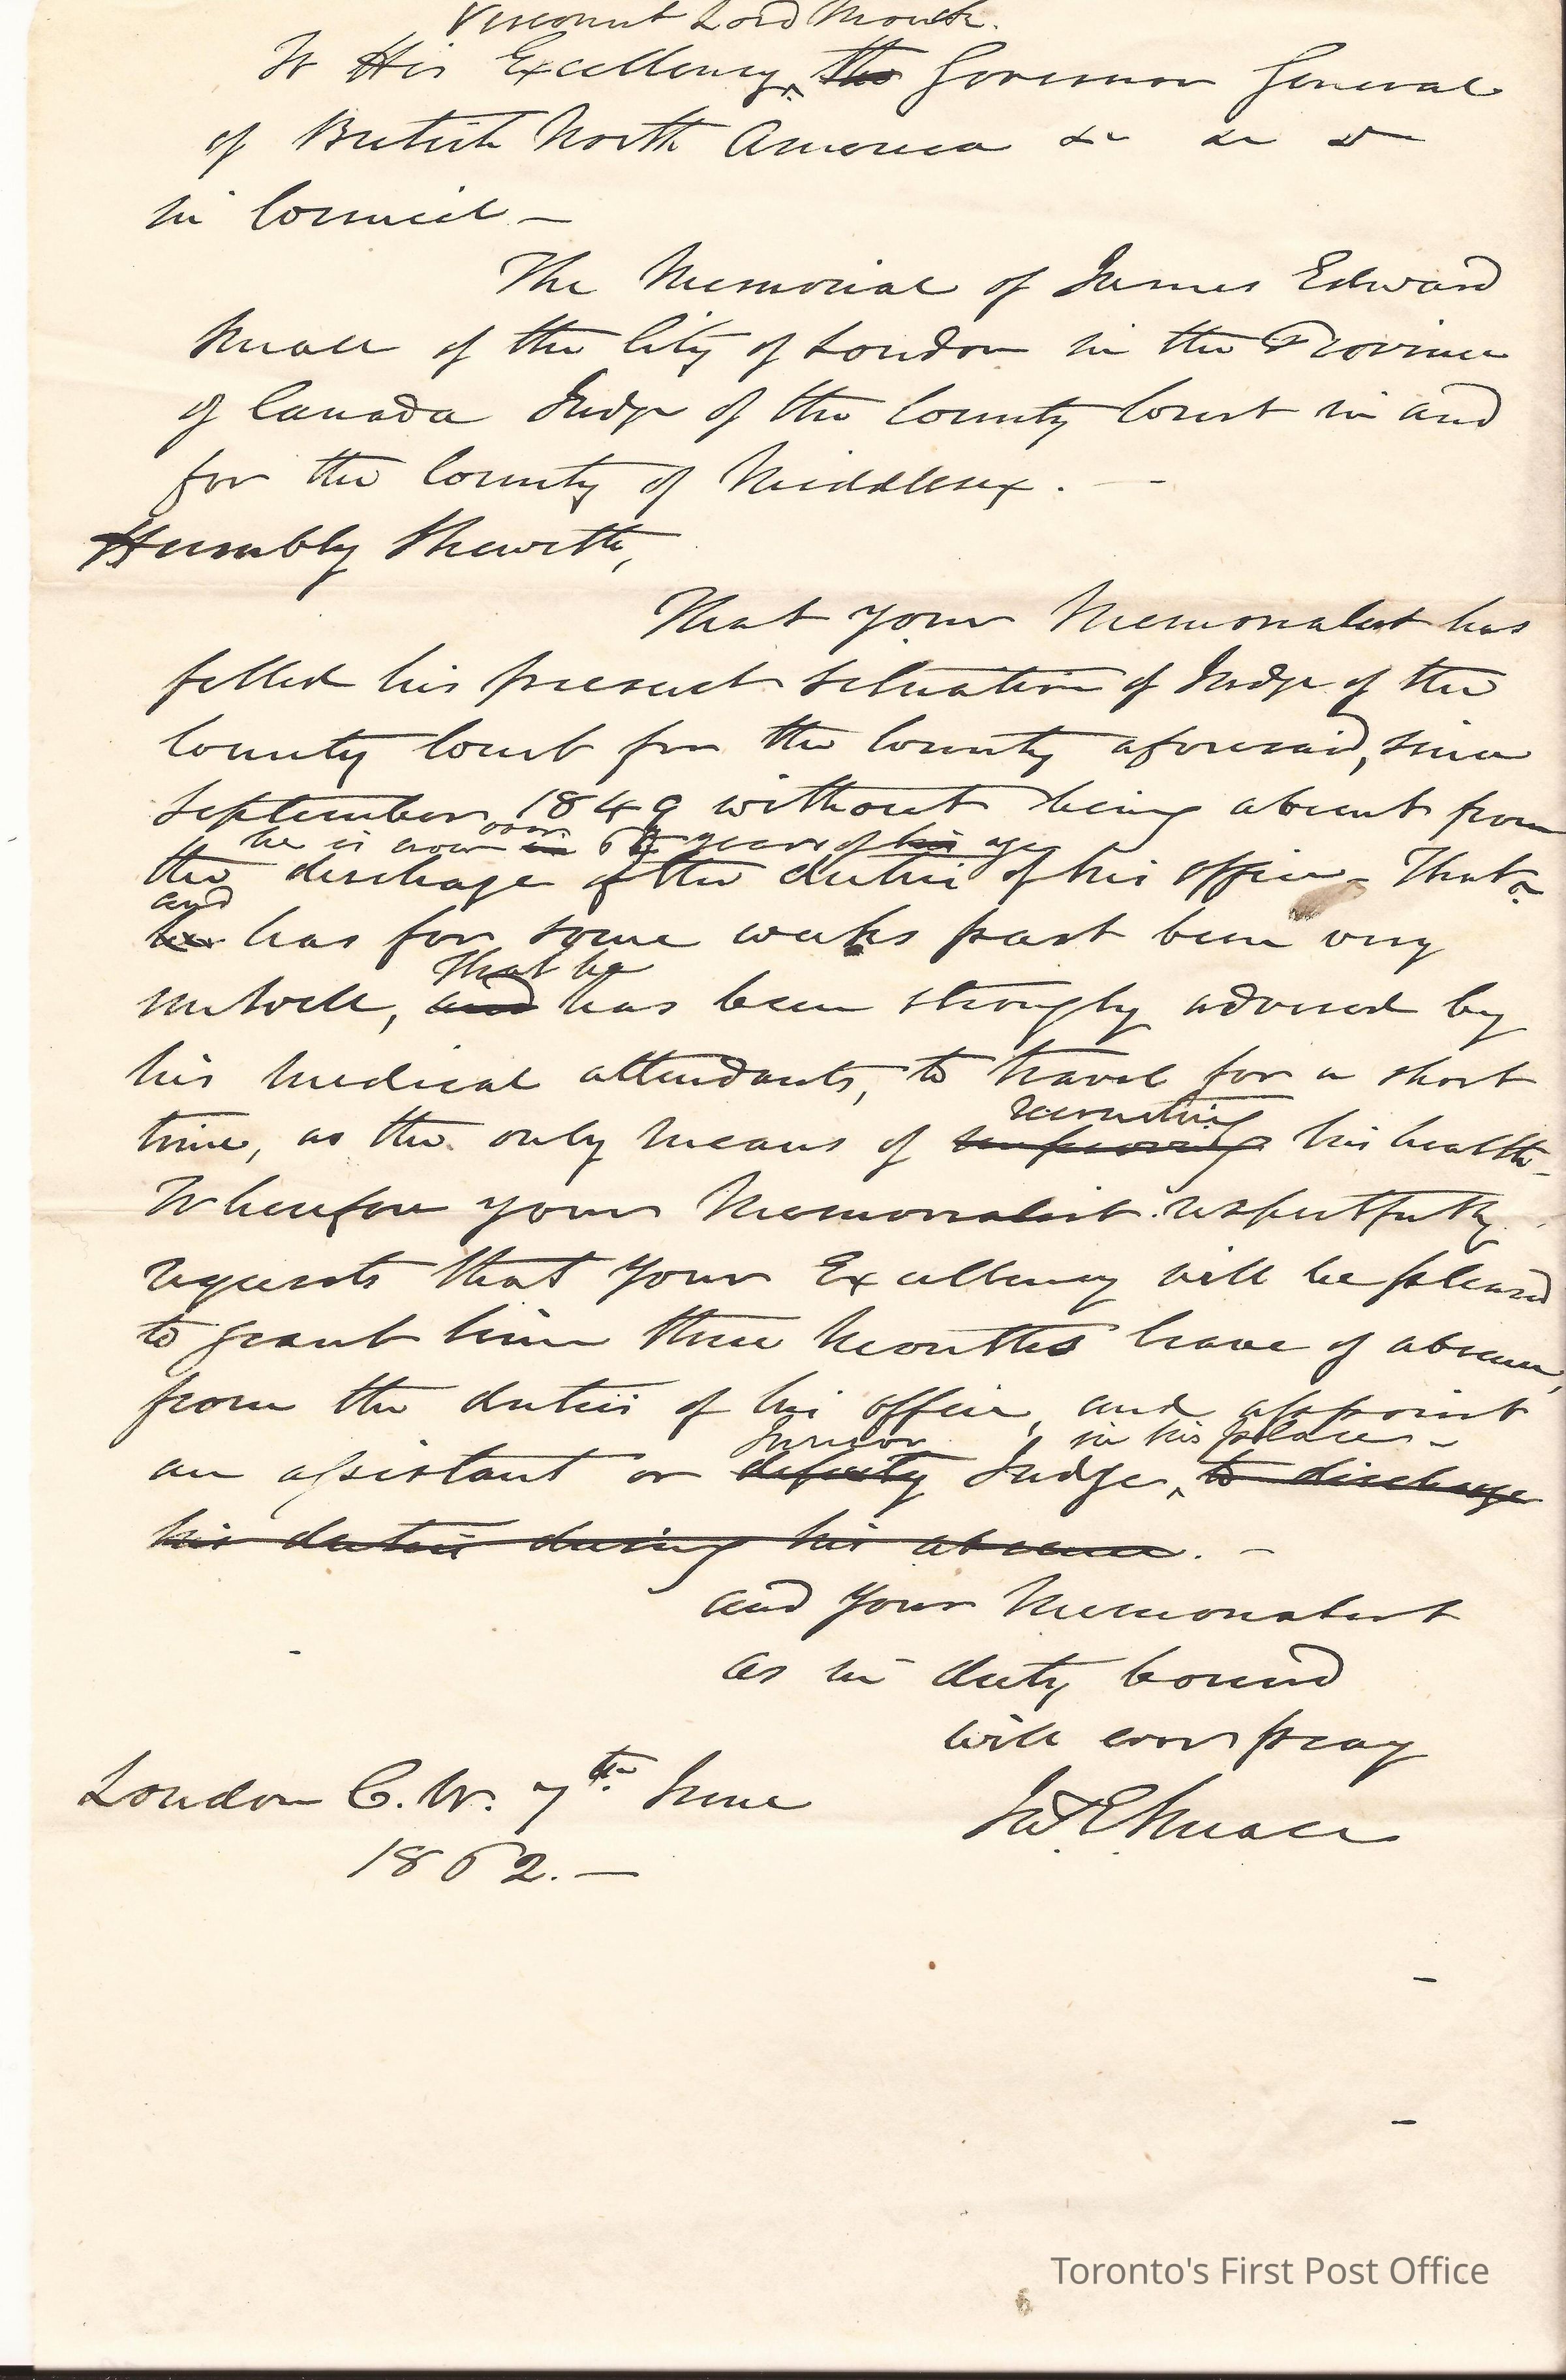 Viscount Lord Monck.
To His Excellency, the Governor General
of British North America &c &c &c
in Council —
The Memorial of James Edward
Small of the City of London in the Province
of Canada Judge of the County Court in and
for the County of Middlesex. —
Humbly Sheweth,
That your Memorialist has
filled his present situation of Judge of the
County Court for the County aforesaid, since
September 1849 without being absent from
he is now over in years of his age
the discharge of the duties of his office — That
and
he has for some weeks past been very
That he
unwell, and has been strongly advised by
his medical attendants, to travel for a short
recruiting
time, as the only means of improving his health —
Wherefore your Memorialist respectfully
requests that your Excellency will be pleased
to grant him three Months leave of absence,
from the duties of his office, and appoint
Junior in his place —
an assistant or deputy Judge, to discharge
his duties during his absence. —
and your Memorialist
as in duty bound
will ever pray
London C.W. 7th June
Jas E Small
1862. —
Toronto's First Post Office